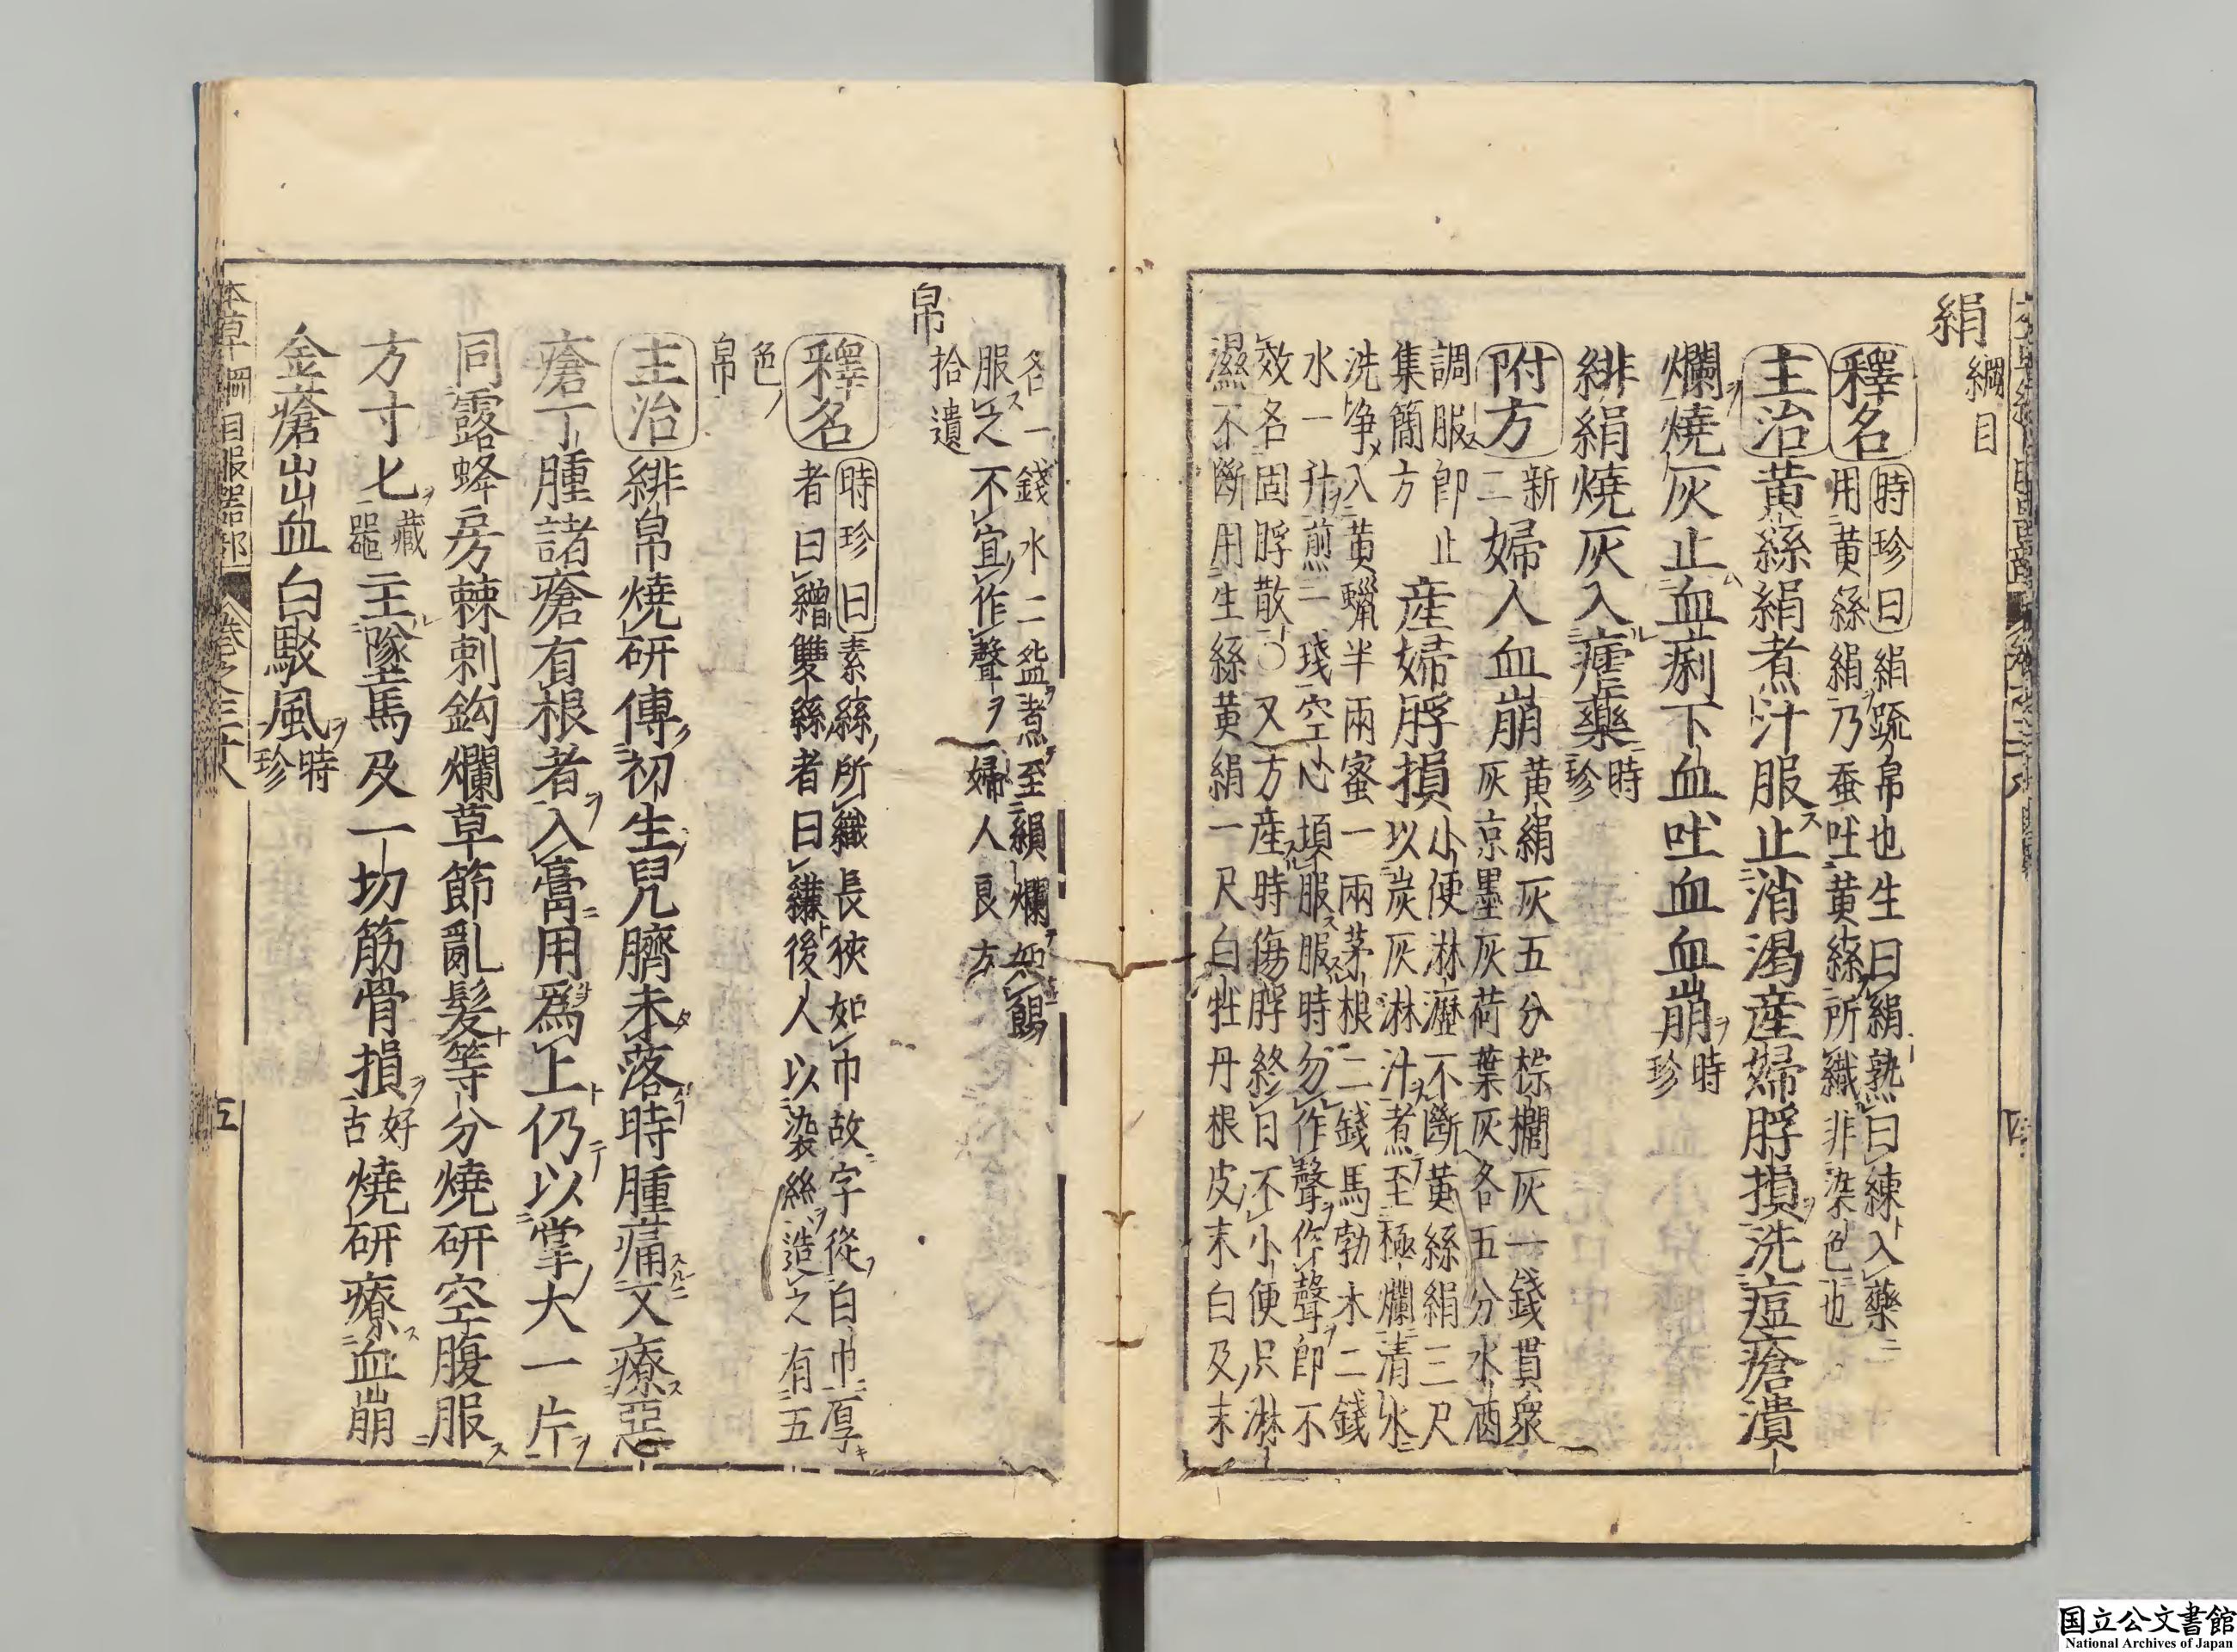 絹
綱目
釋名
時珍曰絹疏帛也生曰絹熟曰練入藥
用黃絲絹乃蚕吐黃絲所織非染色也
主治黃絲絹煮汁服止消渴産婦脬損洗痘瘡潰
爛燒灰止血痢下血吐血血崩時珍
緋絹燒灰入瘧藥時珍
附方
新二
婦人血崩
黃絹灰五分棕櫚灰一錢貫衆
灰京墨灰荷葉灰各五分水酒
調服即止
集簡方
産婦脬損
小便淋瀝不斷黃絲絹三尺
以炭灰淋汁煮至極爛清水
洗净入黃蠟半兩蜜一兩茅根二錢馬勃末二錢
水一升煎一琖空心頓服服時勿作聲作聲即不
效各固脬散○又方産時傷脬終日不小便只淋
濕不斷用生絲黃絹一尺白牡丹根皮末白及末
各一錢水二盌煮至絹爛如餳
服之不宜作聲婦人良方
帛
拾遺
釋名
時珍曰素絲所織長狹如巾故字從白巾厚
者曰繒雙絲者曰縑後人以染絲造之有五
色帛
主治緋帛燒研傅初生兒臍未落時腫痛又療惡
瘡丁腫諸瘡有根者入膏用爲上仍以掌大一片
同露蜂房棘刺鈎爛草節亂髮等分燒研空腹服
方寸匕藏噐主墜馬及一切筋骨損好古燒研療血崩
金瘡出血白駁風時珍
本草綱目服器部
卷之三十八
五
国立公文書館
National Archives of Japan